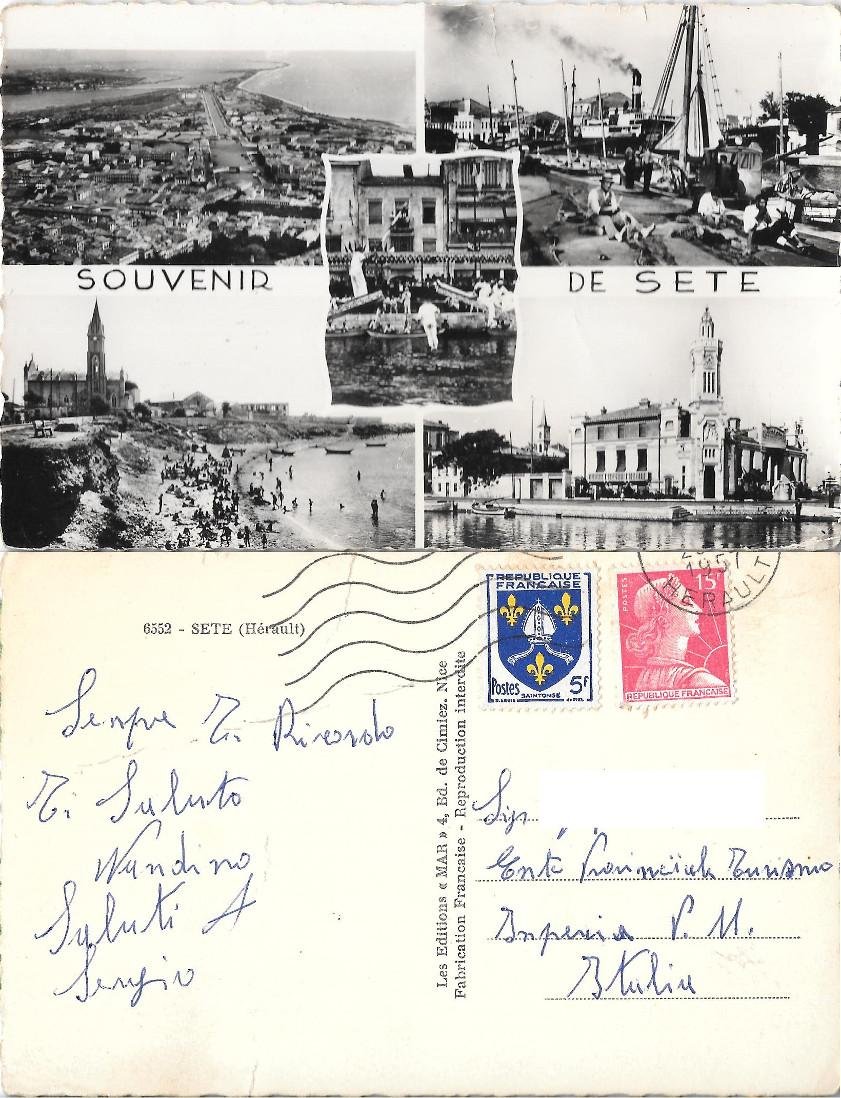 SOUVENIR DE SETE
6552 - SETE (Hérault)
REPUBLIQUE
FRANÇAISE
Postes 5f
SAINTONGE
POSTES 15F
REPUBLIQUE FRANÇAISE
1957
HERAULT
Les Editions « MAR » 4, Bd. de Cimiez. Nice
Fabrication Française - Reproduction interdite
Sempre Ti Ricordo
Ti Saluto
Nandino
Saluti A
Sergio
Sig
Ente Provinciale Turismo
Imperia P. M.
Italia